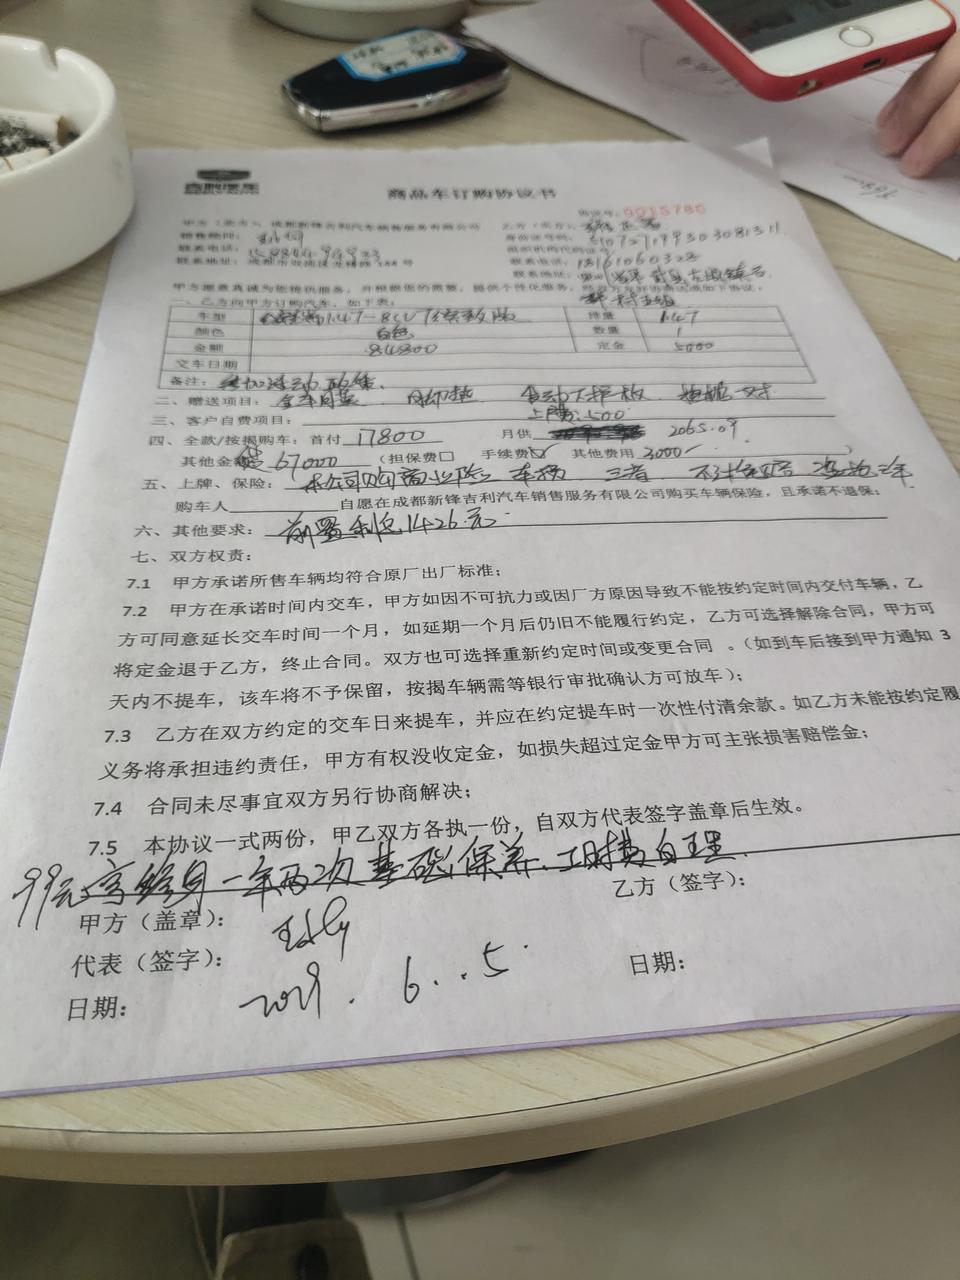 商品车订购协议书
协议号:0015780
甲方(卖方):成都新锋吉利汽车销售服务有限公司 乙方(买方):
销售顾问: 身份证号码:
组织机构代码证号:
联系电话: 联系电话:18161060328
联系地址:成都市双流区 188号 联系地址:
甲方愿意真诚为您提供服务,并根据您的需要,提供个性化服务,经双方友好协商达成如下协议:
一、乙方向甲方订购汽车,如下表:
车型 1.4T-8CVT 排量 1.4T
颜色 白色 数量 1
金额 84800 定金 5000
交车日期
备注:
二、赠送项目:全车
三、客户自费项目: 上牌:500
四、全款/按揭购车:首付 17800 月供 2065.09
其他金额 67000 (担保费□ 手续费☑ 其他费用 3000 )
五、上牌、保险:本公司购商业险: 车损 三者 不计免赔
购车人 自愿在成都新锋吉利汽车销售服务有限公司购买车辆保险,且承诺不退保;
六、其他要求:前置利息1426元.
七、双方权责:
7.1 甲方承诺所售车辆均符合原厂出厂标准;
7.2 甲方在承诺时间内交车,甲方如因不可抗力或因厂方原因导致不能按约定时间内交付车辆,乙
方可同意延长交车时间一个月,如延期一个月后仍旧不能履行约定,乙方可选择解除合同,甲方可
将定金退于乙方,终止合同。双方也可选择重新约定时间或变更合同 。(如到车后接到甲方通知 3
天内不提车,该车将不予保留,按揭车辆需等银行审批确认方可放车);
7.3 乙方在双方约定的交车日来提车,并应在约定提车时一次性付清余款。如乙方未能按约定履
义务将承担违约责任,甲方有权没收定金,如损失超过定金甲方可主张损害赔偿金;
7.4 合同未尽事宜双方另行协商解决;
7.5 本协议一式两份,甲乙双方各执一份,自双方代表签字盖章后生效。
99元享终身一年两次基础保养、工时费自理
甲方(盖章): 乙方(签字):
代表(签字):
日期: 2021. 6..5 日期: